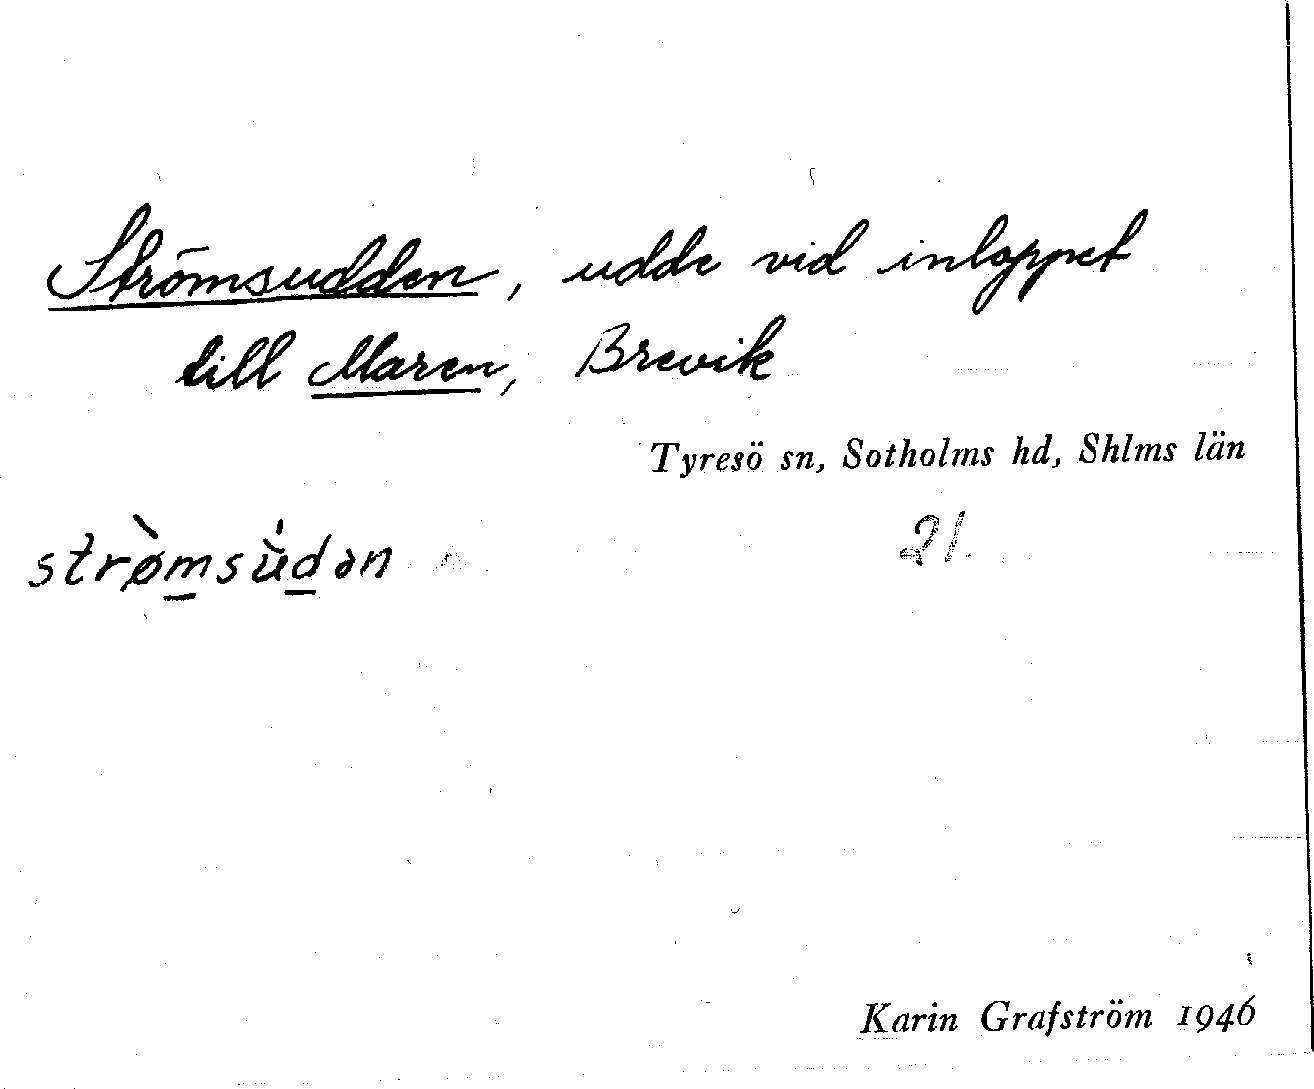 Strömsudden, udde vid inloppet
till Maren, Brevik
Tyresö sn, Sotholms hd, Shlms län
strø̀msùdən
21
Karin Grafström 1946